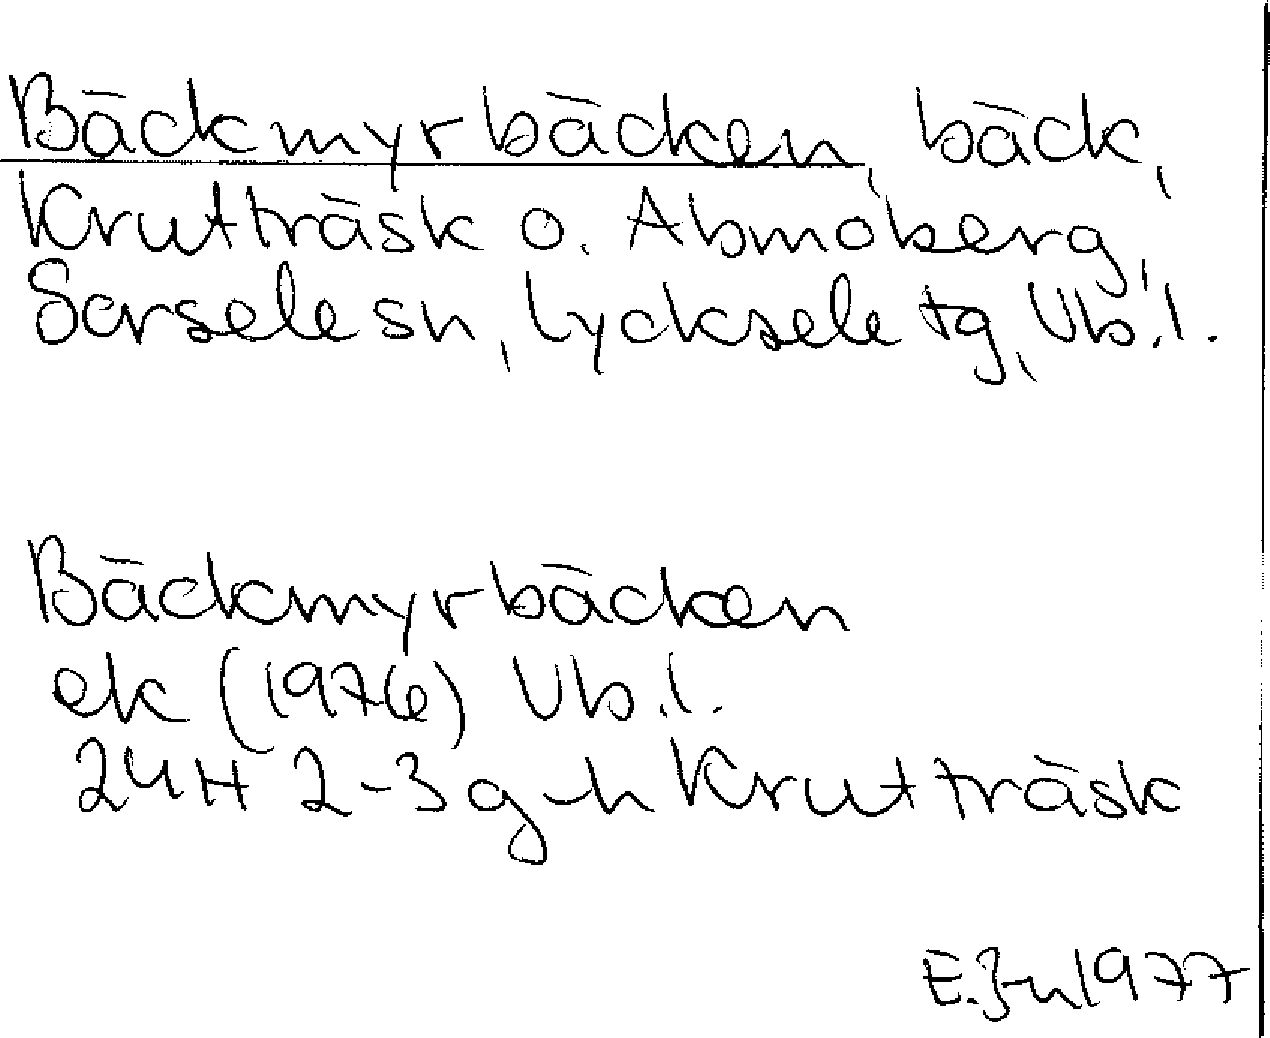 Bäckmyrbäcken, bäck,
Krutträsk o. Abmoberg,
Sorsele sn, Lycksele tg, Vb.l.
Bäckmyrbäcken
ek (1976) Vb.l.
24H 2-3 g-h Krutträsk
1977